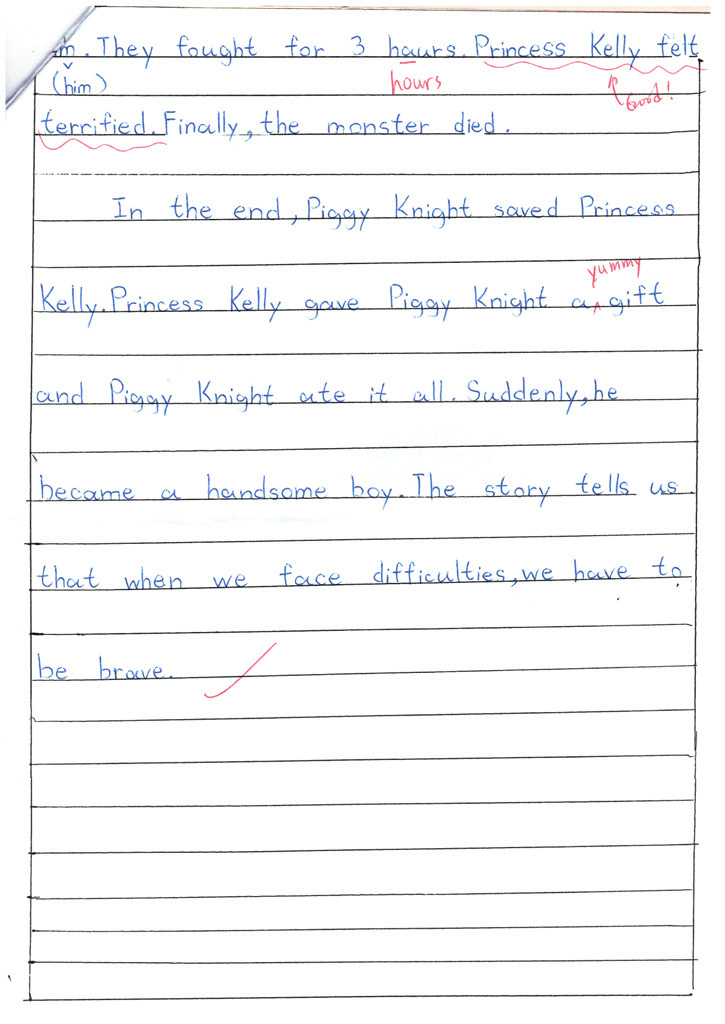 m. They fought for 3 haurs. Princess Kelly felt
(him) hours Good!
terrified. Finally, the monster died.
In the end, Piggy Knight saved Princess
yummy
Kelly. Princess Kelly gave Piggy Knight a gift
and Piggy Knight ate it all. Suddenly, he
became a handsome boy. The story tells us
that when we face difficulties, we have to
be brave.